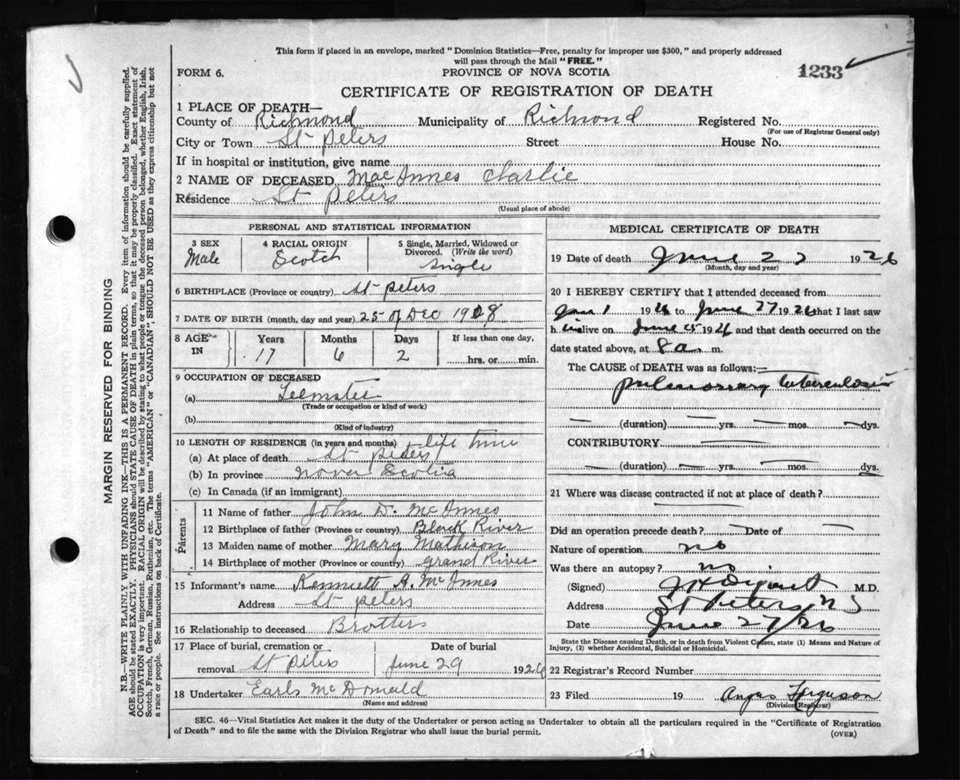 This form if placed in an envelope, marked "Dominion Statistics—Free, penalty for improper use $300," and properly addressed
will pass through the Mail "FREE."
FORM 6.
PROVINCE OF NOVA SCOTIA
1233
CERTIFICATE OF REGISTRATION OF DEATH
1 PLACE OF DEATH—
County of Richmond Municipality of Richmond Registered No.
(For use of Registrar General only)
City or Town St Peters Street House No.
If in hospital or institution, give name
2 NAME OF DECEASED MacInnes Charlie
Residence St Peters
(Usual place of abode)
PERSONAL AND STATISTICAL INFORMATION
3 SEX 4 RACIAL ORIGIN 5 Single, Married, Widowed or
Divorced. (Write the word)
Male Scotch Single
6 BIRTHPLACE (Province or country) St Peters
7 DATE OF BIRTH (month, day and year) 25 of Dec 1908
8 AGE IN Years Months Days If less than one day,
17 6 2 hrs. or min.
9 OCCUPATION OF DECEASED
(a)
(Trade or occupation or kind of work)
(b)
(Kind of industry)
10 LENGTH OF RESIDENCE (in years and months) life time
(a) At place of death St Peters
(b) In province Nova Scotia
(c) In Canada (if an immigrant)
Parents
11 Name of father John D. McInnes
12 Birthplace of father (Province or country) Black River
13 Maiden name of mother Mary Mathison
14 Birthplace of mother (Province or country) Grand River
15 Informant's name Kenneth A. McInnes
Address St Peters
16 Relationship to deceased Brother
17 Place of burial, cremation or Date of burial
removal St Peters June 29 1926
18 Undertaker Earls McDonald
(Name and address)
MEDICAL CERTIFICATE OF DEATH
19 Date of death June 27 1926
(Month, day and year)
20 I HEREBY CERTIFY that I attended deceased from
Jan 1 1926 to June 27 1926 that I last saw
him alive on June 1926 and that death occurred on
date stated above, at 8 a m.
The CAUSE of DEATH was as follows:—
pulmonary tuberculosis
(duration) yrs. mos. dys.
CONTRIBUTORY
(duration) yrs. mos. dys.
21 Where was disease contracted if not at place of death?
Did an operation precede death? Date of
Nature of operation no
Was there an autopsy? no
(Signed) M.D.
Address St Peters NS
Date June 27/26
State the Disease causing Death, or in death from Violent Causes, state (1) Means and Nature of
Injury, (2) whether Accidental, Suicidal or Homicidal.
22 Registrar's Record Number
23 Filed 19 Angus Ferguson
(Division Registrar)
SEC. 46—Vital Statistics Act makes it the duty of the Undertaker or person acting as Undertaker to obtain all the particulars required in the "Certificate of Registration
of Death" and to file the same with the Division Registrar who shall issue the burial permit.
(OVER)
MARGIN RESERVED FOR BINDING
N.B.—WRITE PLAINLY WITH UNFADING INK—THIS IS A PERMANENT RECORD. Every item of information should be carefully supplied.
AGE should be stated EXACTLY. PHYSICIANS should STATE CAUSE OF DEATH in plain terms, so that it may be properly classified. Exact statement of
OCCUPATION is very important. RACIAL ORIGIN will be described by stating to what people or tongue the deceased person belonged, whether English, Irish,
Scotch, French, German, Russian, Ruthenian, etc. The terms "AMERICAN" or "CANADIAN" SHOULD NOT BE USED as they express citizenship but not
a race or people. See instructions on back of Certificate.